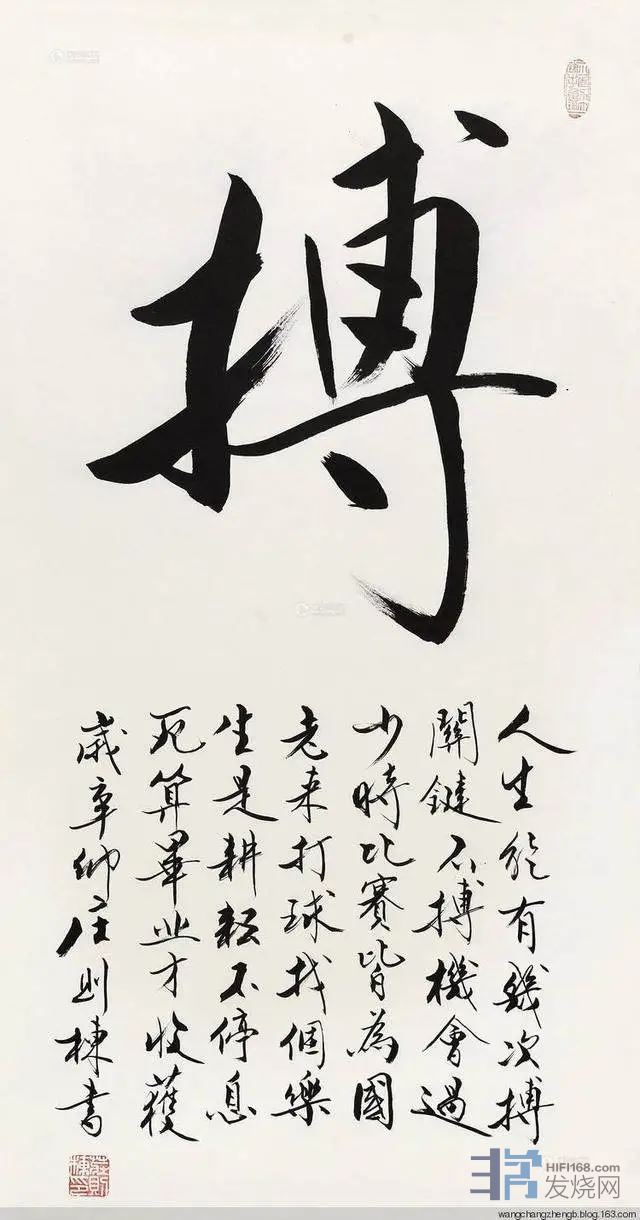 搏
人生能有幾次搏
關鍵不搏機會過
少時比賽皆為國
老来打球找個樂
生是耕耘不停息
死算畢业才收獲
歲辛卯庄则棟書
HIFI168.com
发烧网
wangchangzhengb.blog.163.com